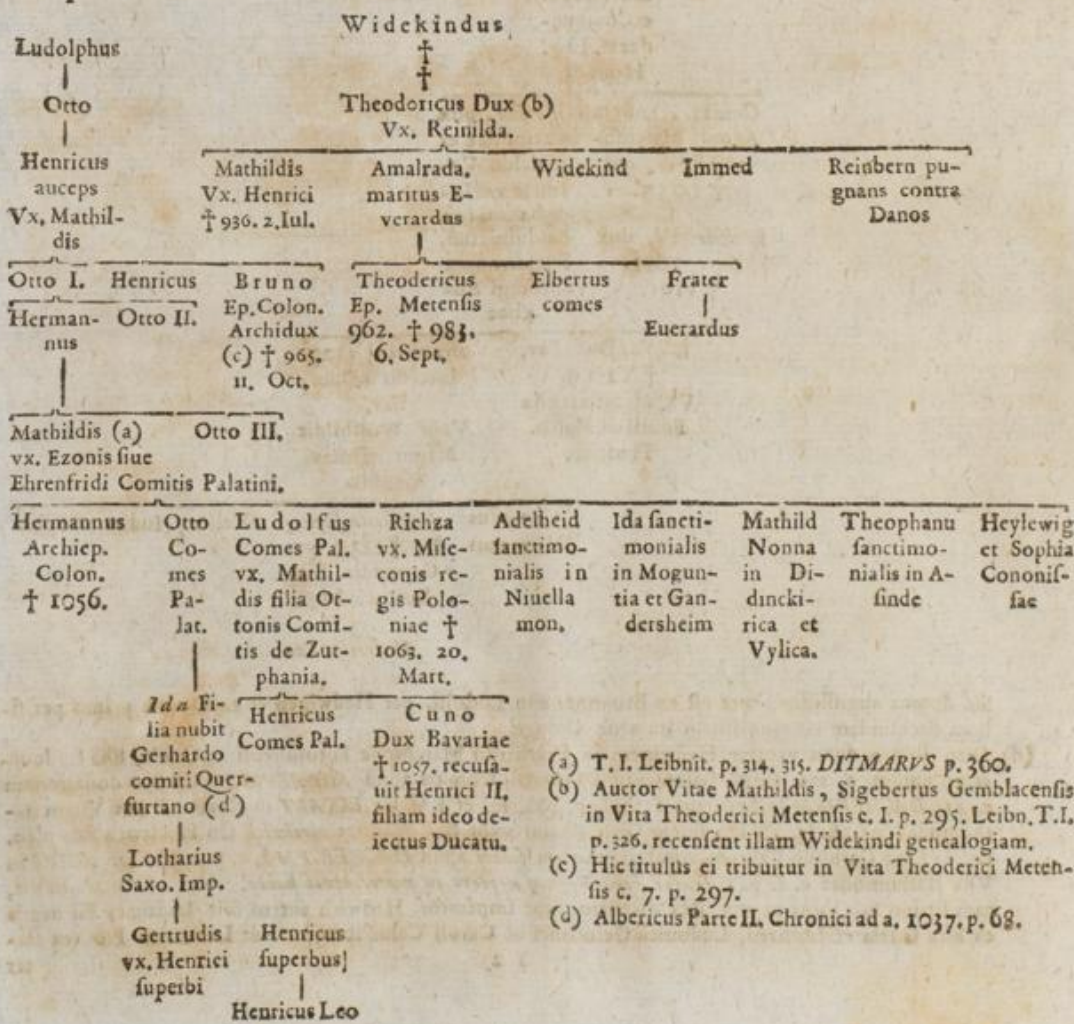 Widekindus
Ludolphus
†
†
Otto
Theodoricus Dux (b)
Vx. Reinilda.
Henricus
auceps
Vx. Mathil-
dis
Mathildis
Vx. Henrici
† 936. 2. Iul.
Amalrada.
maritus E-
verardus
Widekind
Immed
Reinbern pu-
gnans contra
Danos
Otto I.
Henricus
Bruno
Ep. Colon.
Archidux
(c) † 965.
11. Oct.
Theodericus
Ep. Metenſis
962. † 983.
6. Sept.
Elbertus
comes
Frater
Euerardus
Herman-
nus
Otto II.
Mathildis (a)
vx. Ezonis ſiue
Ehrenfridi Comitis Palatini.
Otto III.
Hermannus
Archiep.
Colon.
† 1056.
Otto
Co-
mes
Pa-
lat.
Ludolfus
Comes Pal.
vx. Mathil-
dis filia Ot-
tonis Comi-
tis de Zut-
phania.
Richza
vx. Miſe-
conis re-
gis Polo-
niae †
1063. 20.
Mart.
Adelheid
ſanctimo-
nialis in
Niuella
mon.
Ida ſancti-
monialis
in Mogun-
tia et Gan-
dersheim
Mathild
Nonna
in Di-
dincki-
rica et
Vylica.
Theophanu
ſanctimo-
nialis in A-
ſinde
Heylewig
et Sophia
Cononiſ-
ſae
Ida Fi-
lia nubit
Gerhardo
comiti Quer-
furtano (d)
Henricus
Comes Pal.
Cuno
Dux Bavariae
† 1057. recuſa-
uit Henrici II.
filiam ideo de-
iectus Ducatu.
Lotharius
Saxo. Imp.
Gertrudis
vx. Henrici
ſuperbi
Henricus
ſuperbus
Henricus Leo
(a) T. I. Leibnit. p. 314. 315. DITMARVS p. 360.
(b) Auctor Vitae Mathildis, Sigebertus Gemblacenſis
in Vita Theoderici Metenſis c. I. p. 295. Leibn. T. I.
p. 326. recenſent illam Widekindi genealogiam.
(c) Hic titulus ei tribuitur in Vita Theoderici Meten-
ſis c. 7. p. 297.
(d) Albericus Parte II. Chronici ad a. 1037. p. 68.